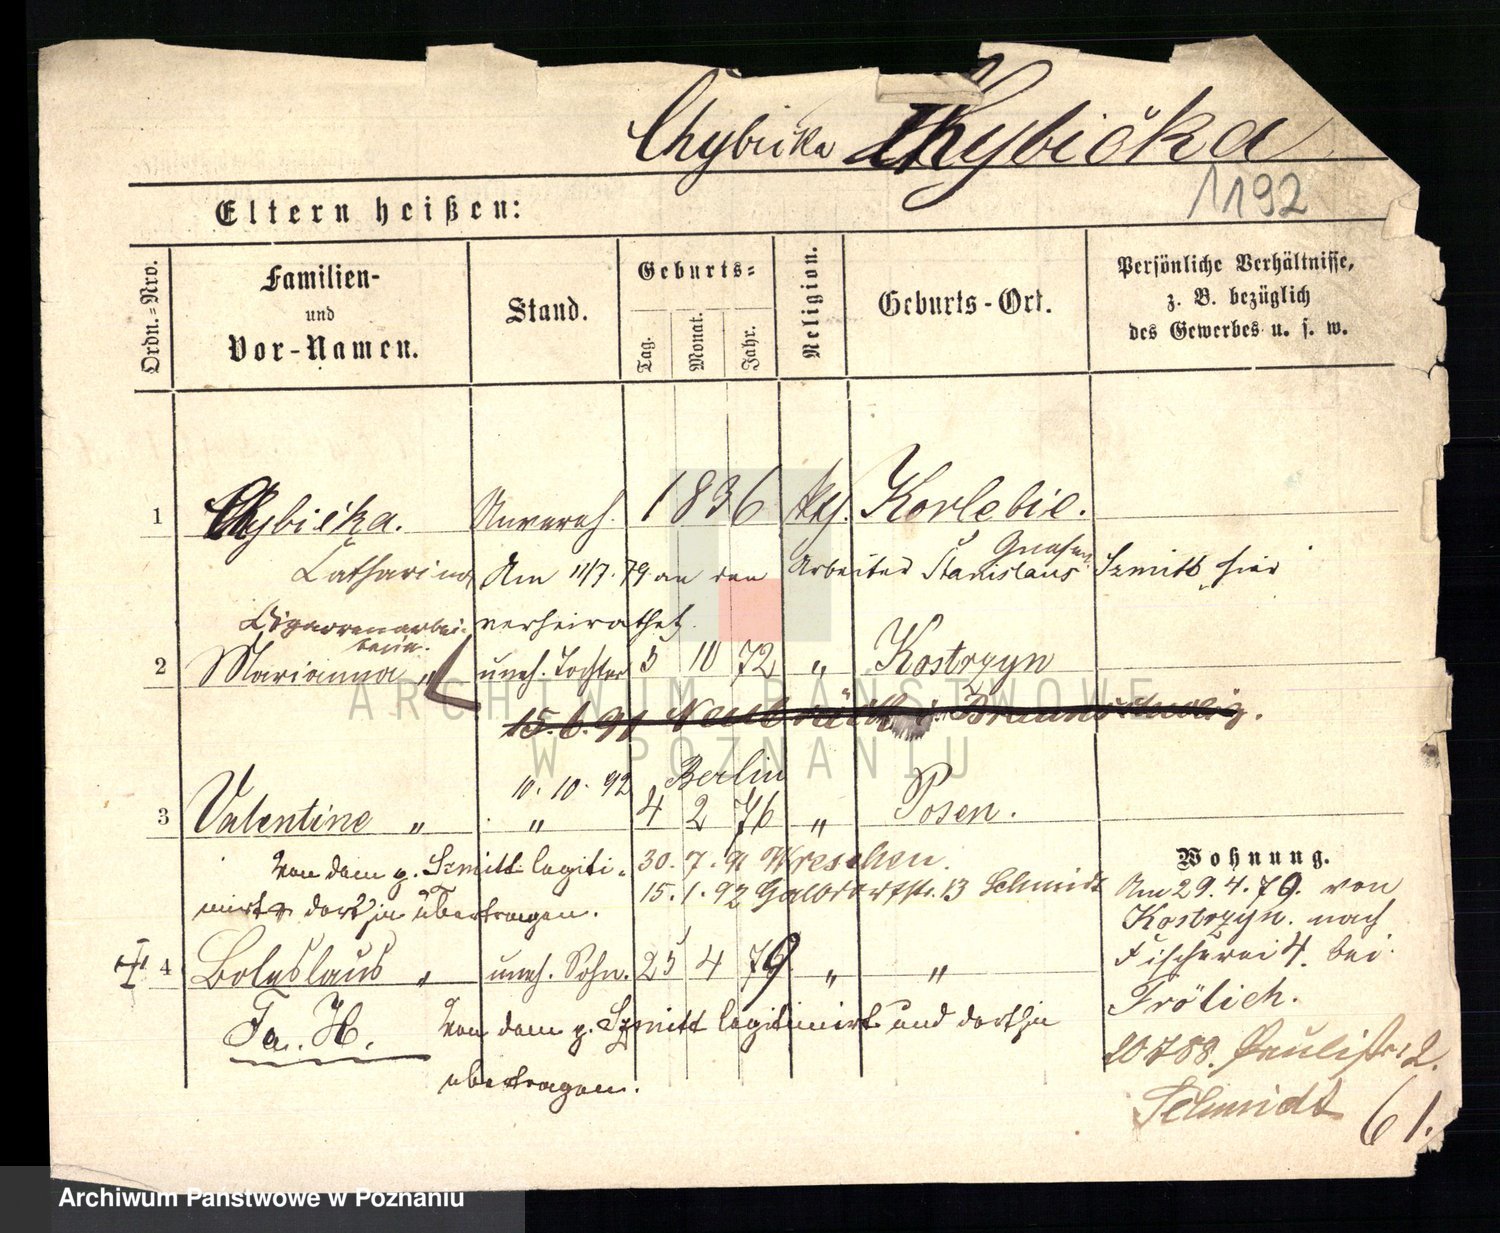 Chybicka Chybička
1192
Eltern heißen:
Ordn.-Nro.
Familien-
und
Vor-Namen.
Stand.
Geburts-
Tag.
Monat.
Jahr.
Religion.
Geburts-Ort.
Persönliche Verhältnisse,
z. B. bezüglich
des Gewerbes u. s. w.
1 Chybička. Unvereh. 1836 Korlebie.
Gnesen
Catharina Am 11/7. 79 an den Arbeiter Stanislaus Szmitt hier
Cigarrenarbei- verheirathet.
terin.
2 Marianna " uneh. Tochter 5 10 72 " Kostrzyn
15. 6. 91 Neubrück i. Braunschweig.
10. 10. 92 Berlin
3 Valentine " " 4 2 76 " Posen.
Von dem p. Szmitt legiti- 30. 7. 91 Wreschen.
mirt dorthin übertragen. 15. 1. 92 13 Schmidt
4 Boleslaus " uneh. Sohn. 25 4 79. " "
Fa. H. Von dem p. Szmitt legitimirt und dorthin
übertragen.
Wohnung.
Am 29. 4. 79. von
Kostrzyn. nach
Fischerei 4. bei
Frölich.
20 7 88. Paulistr. 2.
Schmidt
61.
ARCHIWUM PAŃSTWOWE
W POZNANIU
Archiwum Państwowe w Poznaniu